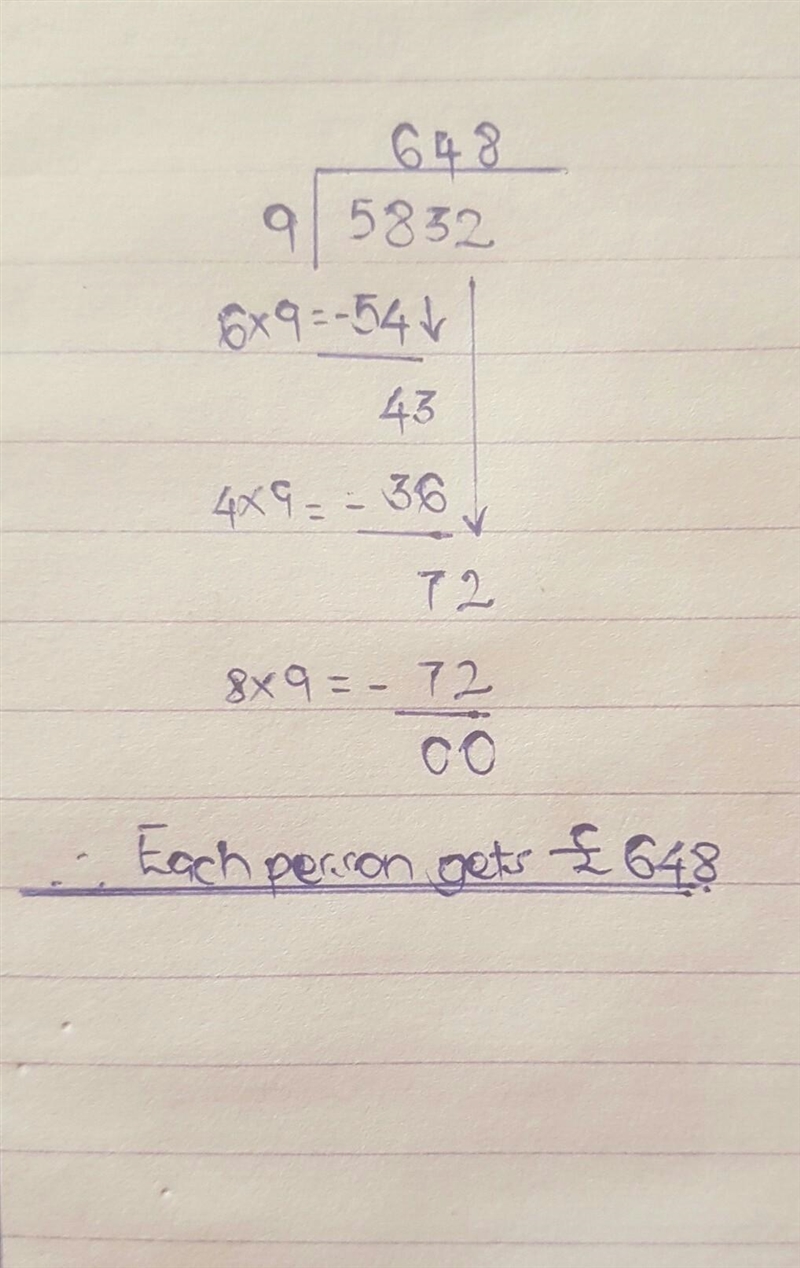 648
9 5832
6×9=-54↓
43
4×9=-36
72
8×9=-72
00
∴ Each person gets £648